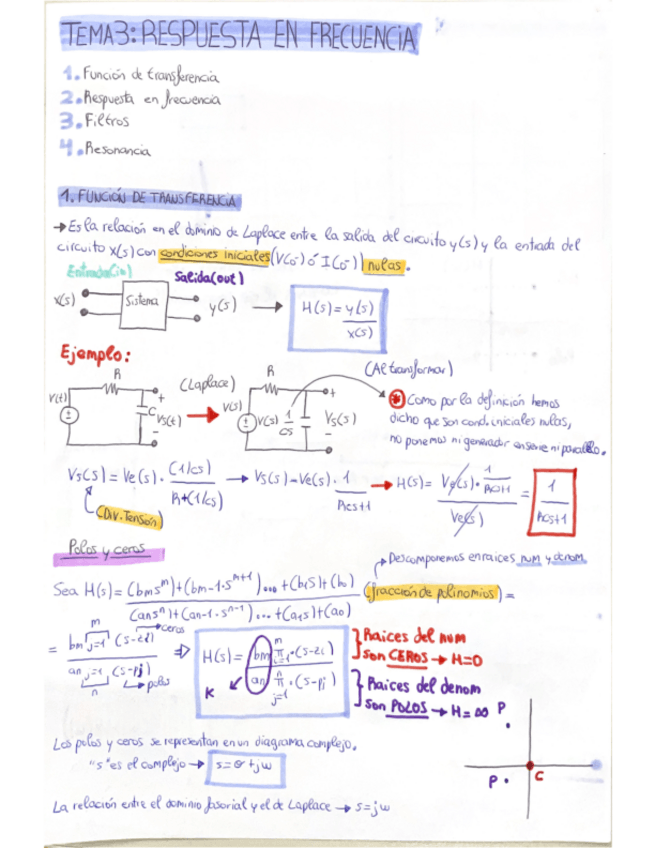 TEMA 3: RESPUESTA EN FRECUENCIA
1. Función de transferencia
2. Respuesta en frecuencia
3. Filtros
4. Resonancia
1. FUNCIÓN DE TRANSFERENCIA
→ Es la relación en el dominio de Laplace entre la salida del circuito y(s) y la entrada del
circuito x(s) con condiciones iniciales (V(0-) ó I(0-)) nulas.
Entrada(in) Salida(out)
x(s) Sistema y(s) → H(s) = y(s)/x(s)
Ejemplo:
(Al transformar)
R (Laplace) R
V(t) C Vs(t) → V(s) V(s) 1/cs Vs(s)
* Como por la definición hemos
dicho que son cond. iniciales nulas,
no ponemos ni generador en serie ni paralelo.
Vs(s) = Ve(s) · (1/cs)/(R+(1/cs)) → Vs(s) = Ve(s) · 1/(Rcs+1) → H(s) = (Ve(s) · 1/(RCs+1))/Ve(s) = 1/(Rcs+1)
(Div. Tensón)
Polos y ceros
Descomponemos en raices num y denom
Sea H(s) = (bm s^m)+(bm-1·s^m+1)...+(b1s)+(b0) / (an s^n)+(an-1·s^n-1)...+(a1s)+(a0) (fracción de polinomios) =
= bm m j=1 (s-zi) → ceros / an j=1 n (s-pj) → polos ⇒ H(s) = bm m π i=1 ·(s-zi) / an n π j=1 ·(s-pj)
K
Raices del num
son CEROS → H=0
Raices del denom
son POLOS → H=∞
P
P C
Los polos y ceros se representan en un diagrama complejo.
"s" es el complejo → s=σ+jw
La relación entre el dominio fasorial y el de Laplace → s=jw